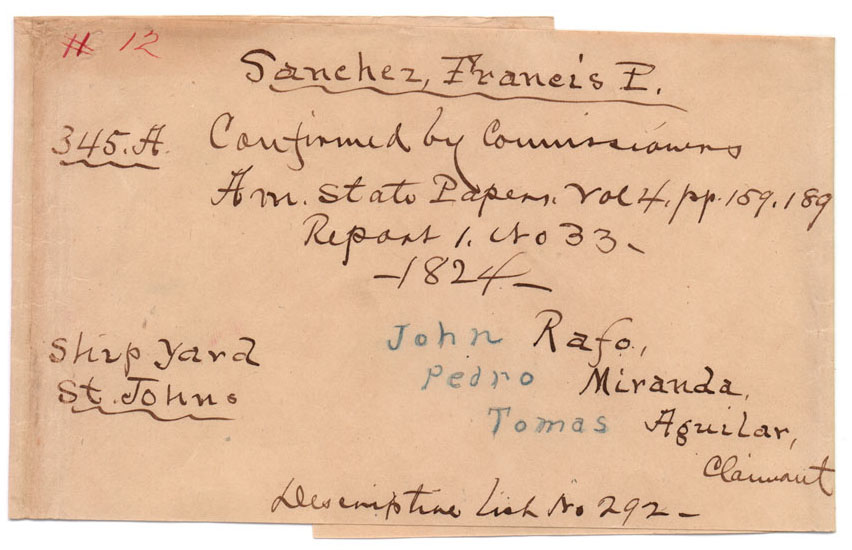 11 12
Sanchez, Francis P.
345.A. Confirmed by Commissioners
Am. State Papers. Vol 4. pp. 159. 189
Report 1. No 33 -
- 1824 -
Ship Yard
St. Johns
John Rafo,
Pedro Miranda,
Tomas Aguilar,
Claimant
Descriptive List No 292 -